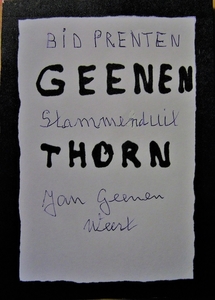 BID PRENTEN
GEENEN
Stammenduit
THORN
Jan Geenen
Weert